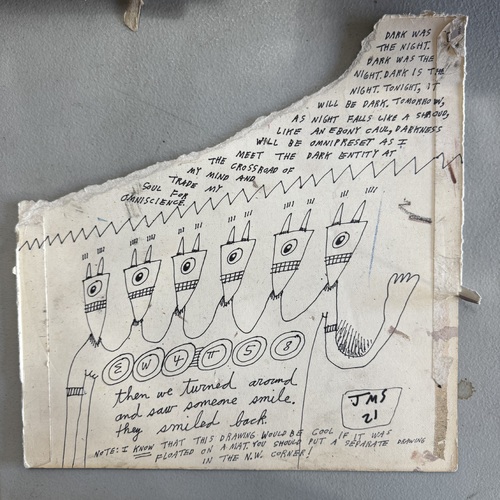 DARK WAS
THE NIGHT.
DARK WAS THE
NIGHT. DARK IS THE
NIGHT. TONIGHT, IT
WILL BE DARK. TOMORROW,
AS NIGHT FALLS LIKE A SHROUD,
LIKE AN EBONY CAUL, DARKNESS
WILL BE OMNIPRESET AS I
THE MEET THE DARK ENTITY AT
MY CROSSROAD OF
MY MIND AND
SOUL TRADE MY
FOR
OMNISCIENCE.
Σ W 4 π 5 8
then we turned around
and saw someone smile.
they smiled back.
JMS
21
NOTE: I KNOW THAT THIS DRAWING WOULD BE COOL IF IT WAS
FLOATED ON A MAT. YOU SHOULD PUT A SEPARATE DRAWING
IN THE N.W. CORNER!